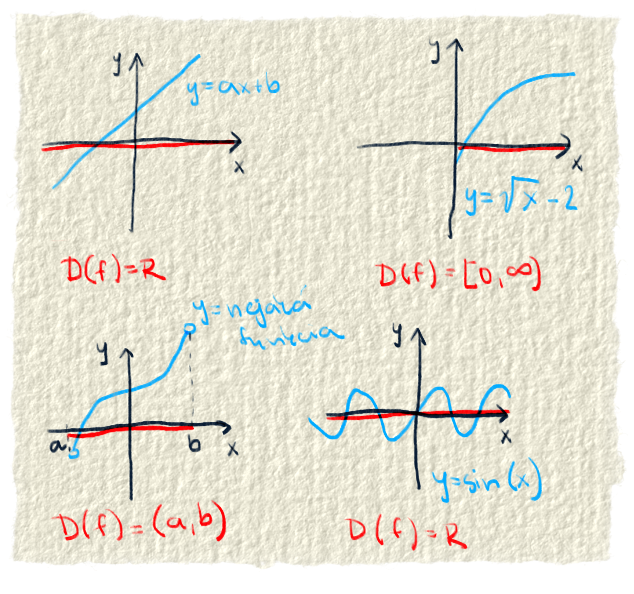 y
y=ax+b
x
D(f)=R
y
x
y=√x-2
D(f)=[0,∞)
y=nejaká
funkcia
y
a
b
x
D(f)=(a,b)
y
x
y=sin(x)
D(f)=R